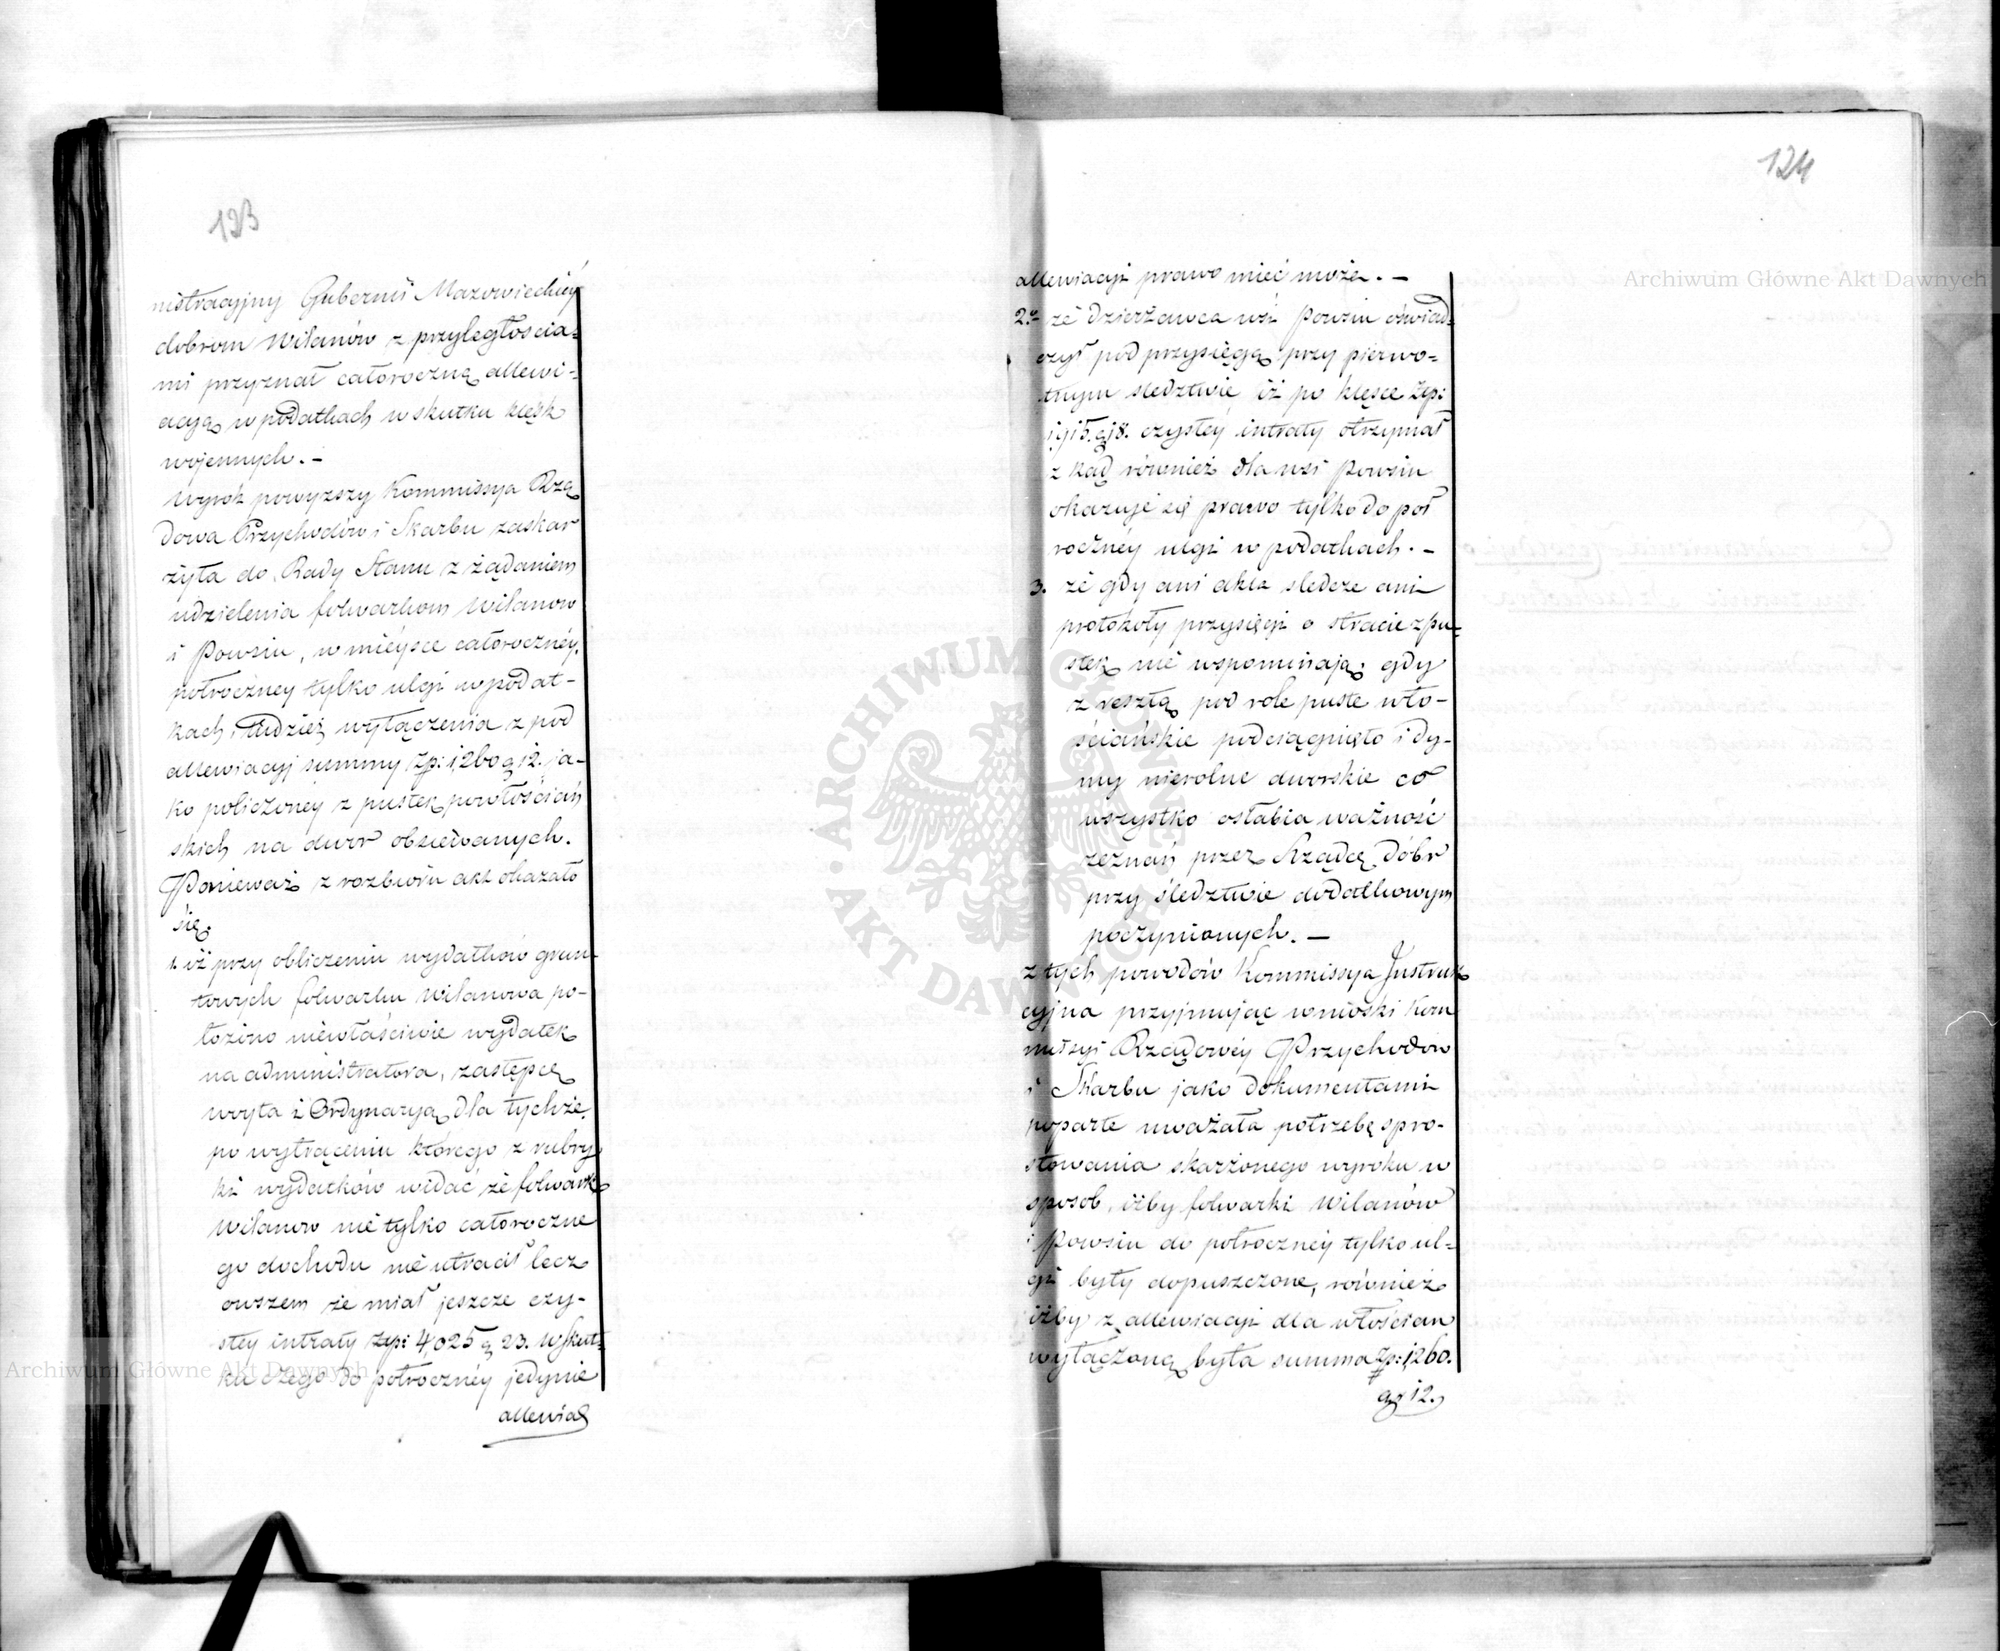 123
nistracyjny Gubernii Mazowieckiéy
dobrom Wilanów z przyległościa=
mi przyznał całoroczną allewi=
acyą w podatkach w skutku klęsk
woiennych. –
Wyrok powyższy Kommissya Rzą
dowa Przychodów i Skarbu zaskar
żyła do Rady Stanu z żądaniem
udzielenia folwarkom Wilanow
i Powsin, w mieysce całorocznéy,
półrocznéy tylko ulgi w podat-
kach, tudzież wyłączenia z pod
allewiacyi summy Zp: 1,260 g 12. ja-
ko policzonéy z pustek powłościań
skich na dwór obsiewanych.
Ponieważ z rozbioru akt okazało
się.
1. iż przy obliczeniu wydatków grun-
towych folwarku Wilanowa po-
łożono niewłaściwie wydatek
na administratora, zastępcę
woyta i Ordynaryą dla tychże,
po wytrąceniu którego z rubry
ki wydatków widać że folwark
Wilanow nie tylko całoroczne
go dochodu nie utracił lecz
owszem że miał jeszcze czy-
stéy intraty Zp: 4,025 g 23. w skut-
ku czego do półrocznéy jedynie
allewia
124
allewiacyi prawo mieć może. –
2.º że dzierżawca wsi Powsin oświad=
czył pod przysięgą przy pierwo=
tnym śledztwie iż po klęsce Zp:
1915. g 18. czystéy intraty otrzymał
z kąd również dla wsi Powsin
okazuje się prawo tylko do pół
rocznéy ulgi w podatkach. –
3. że gdy ani akta śledcze ani
protokóły przysięgi o stracie z pu-
stek nie wspominają; gdy
z resztą pod role puste wło-
ściańskie podciągnięto i dy-
my nierolne dworskie co
wszystko osłabia ważność
zeznań przez Rządcę dóbr
przy śledztwie dodatkowym
poczynionych. –
z tych powodów Kommissya Instruk
cyjna przyjmując wnioski Kom
missyi Rządowéy Przychodów
i Skarbu jako dokumentami
poparte uważała potrzebę spro-
stowania skarżonego wyroku w
sposob, iżby folwarki Wilanów
i Powsin do półrocznéy tylko ul-
gi były dopuszczone, również
iżby z allewiacyi dla włościan
wyłączoną była summa Zp: 1,260.
g 12.
Archiwum Główne Akt Dawnych
Archiwum Główne Akt Dawnych
ARCHIWUM GŁÓWNE
AKT DAWNYCH